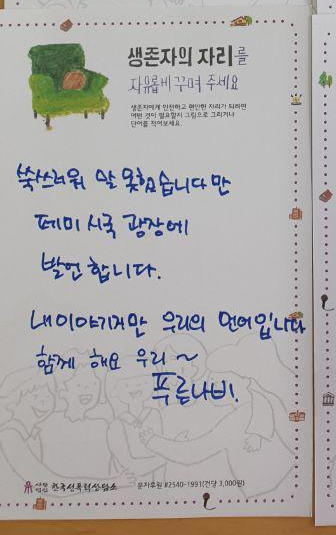 생존자의 자리를
자유롭게 꾸며 주세요
생존자에게 안전하고 편안한 자리가 되려면
어떤 것이 필요할지 그림으로 그리거나
단어를 적어보세요.
쑥쓰러워 잘 못했습니다만
페미시국 광장에
발언합니다.
내 이야기지만 우리의 언어입니다
함께 해요 우리~
푸른나비.
사단법인 한국성폭력상담소
문자후원 #2540-1991(건당 3,000원)